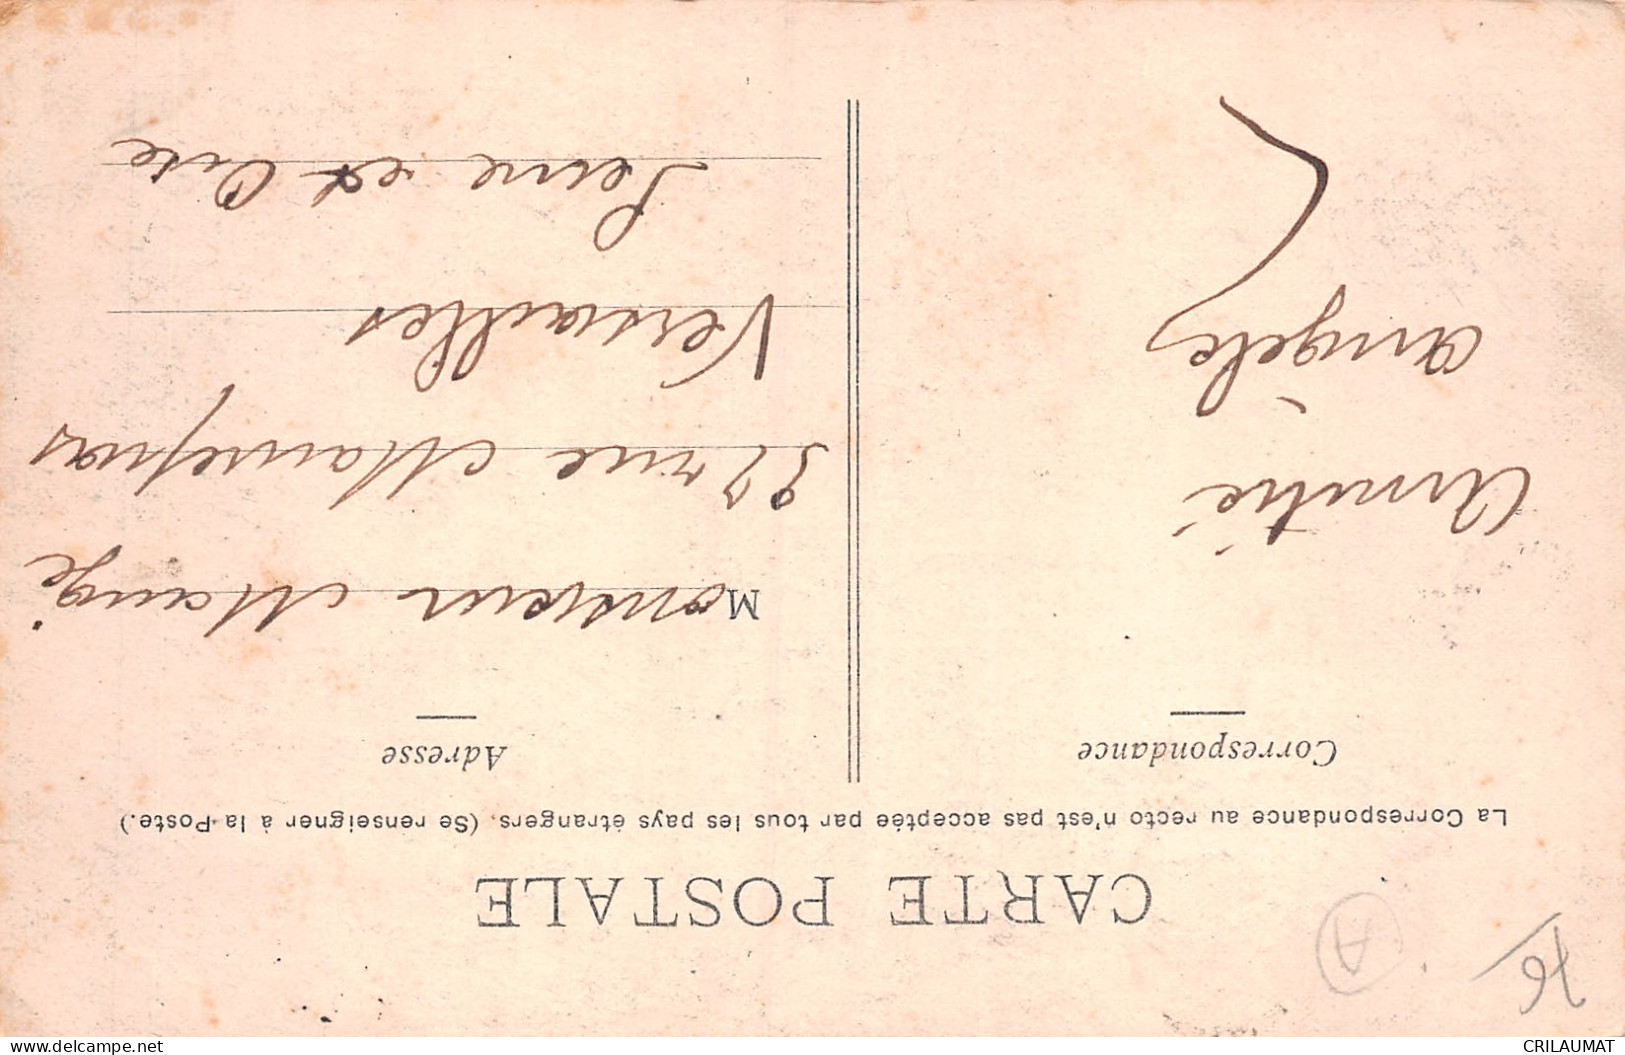 CARTE POSTALE
La Correspondance au recto n'est pas acceptée par tous les pays étrangers. (Se renseigner à la Poste.)
Correspondance
Amitié
Angèle
Adresse
Monsieur Maugé
rue
Versailles
Seine et Oise
A
76
CRILAUMAT